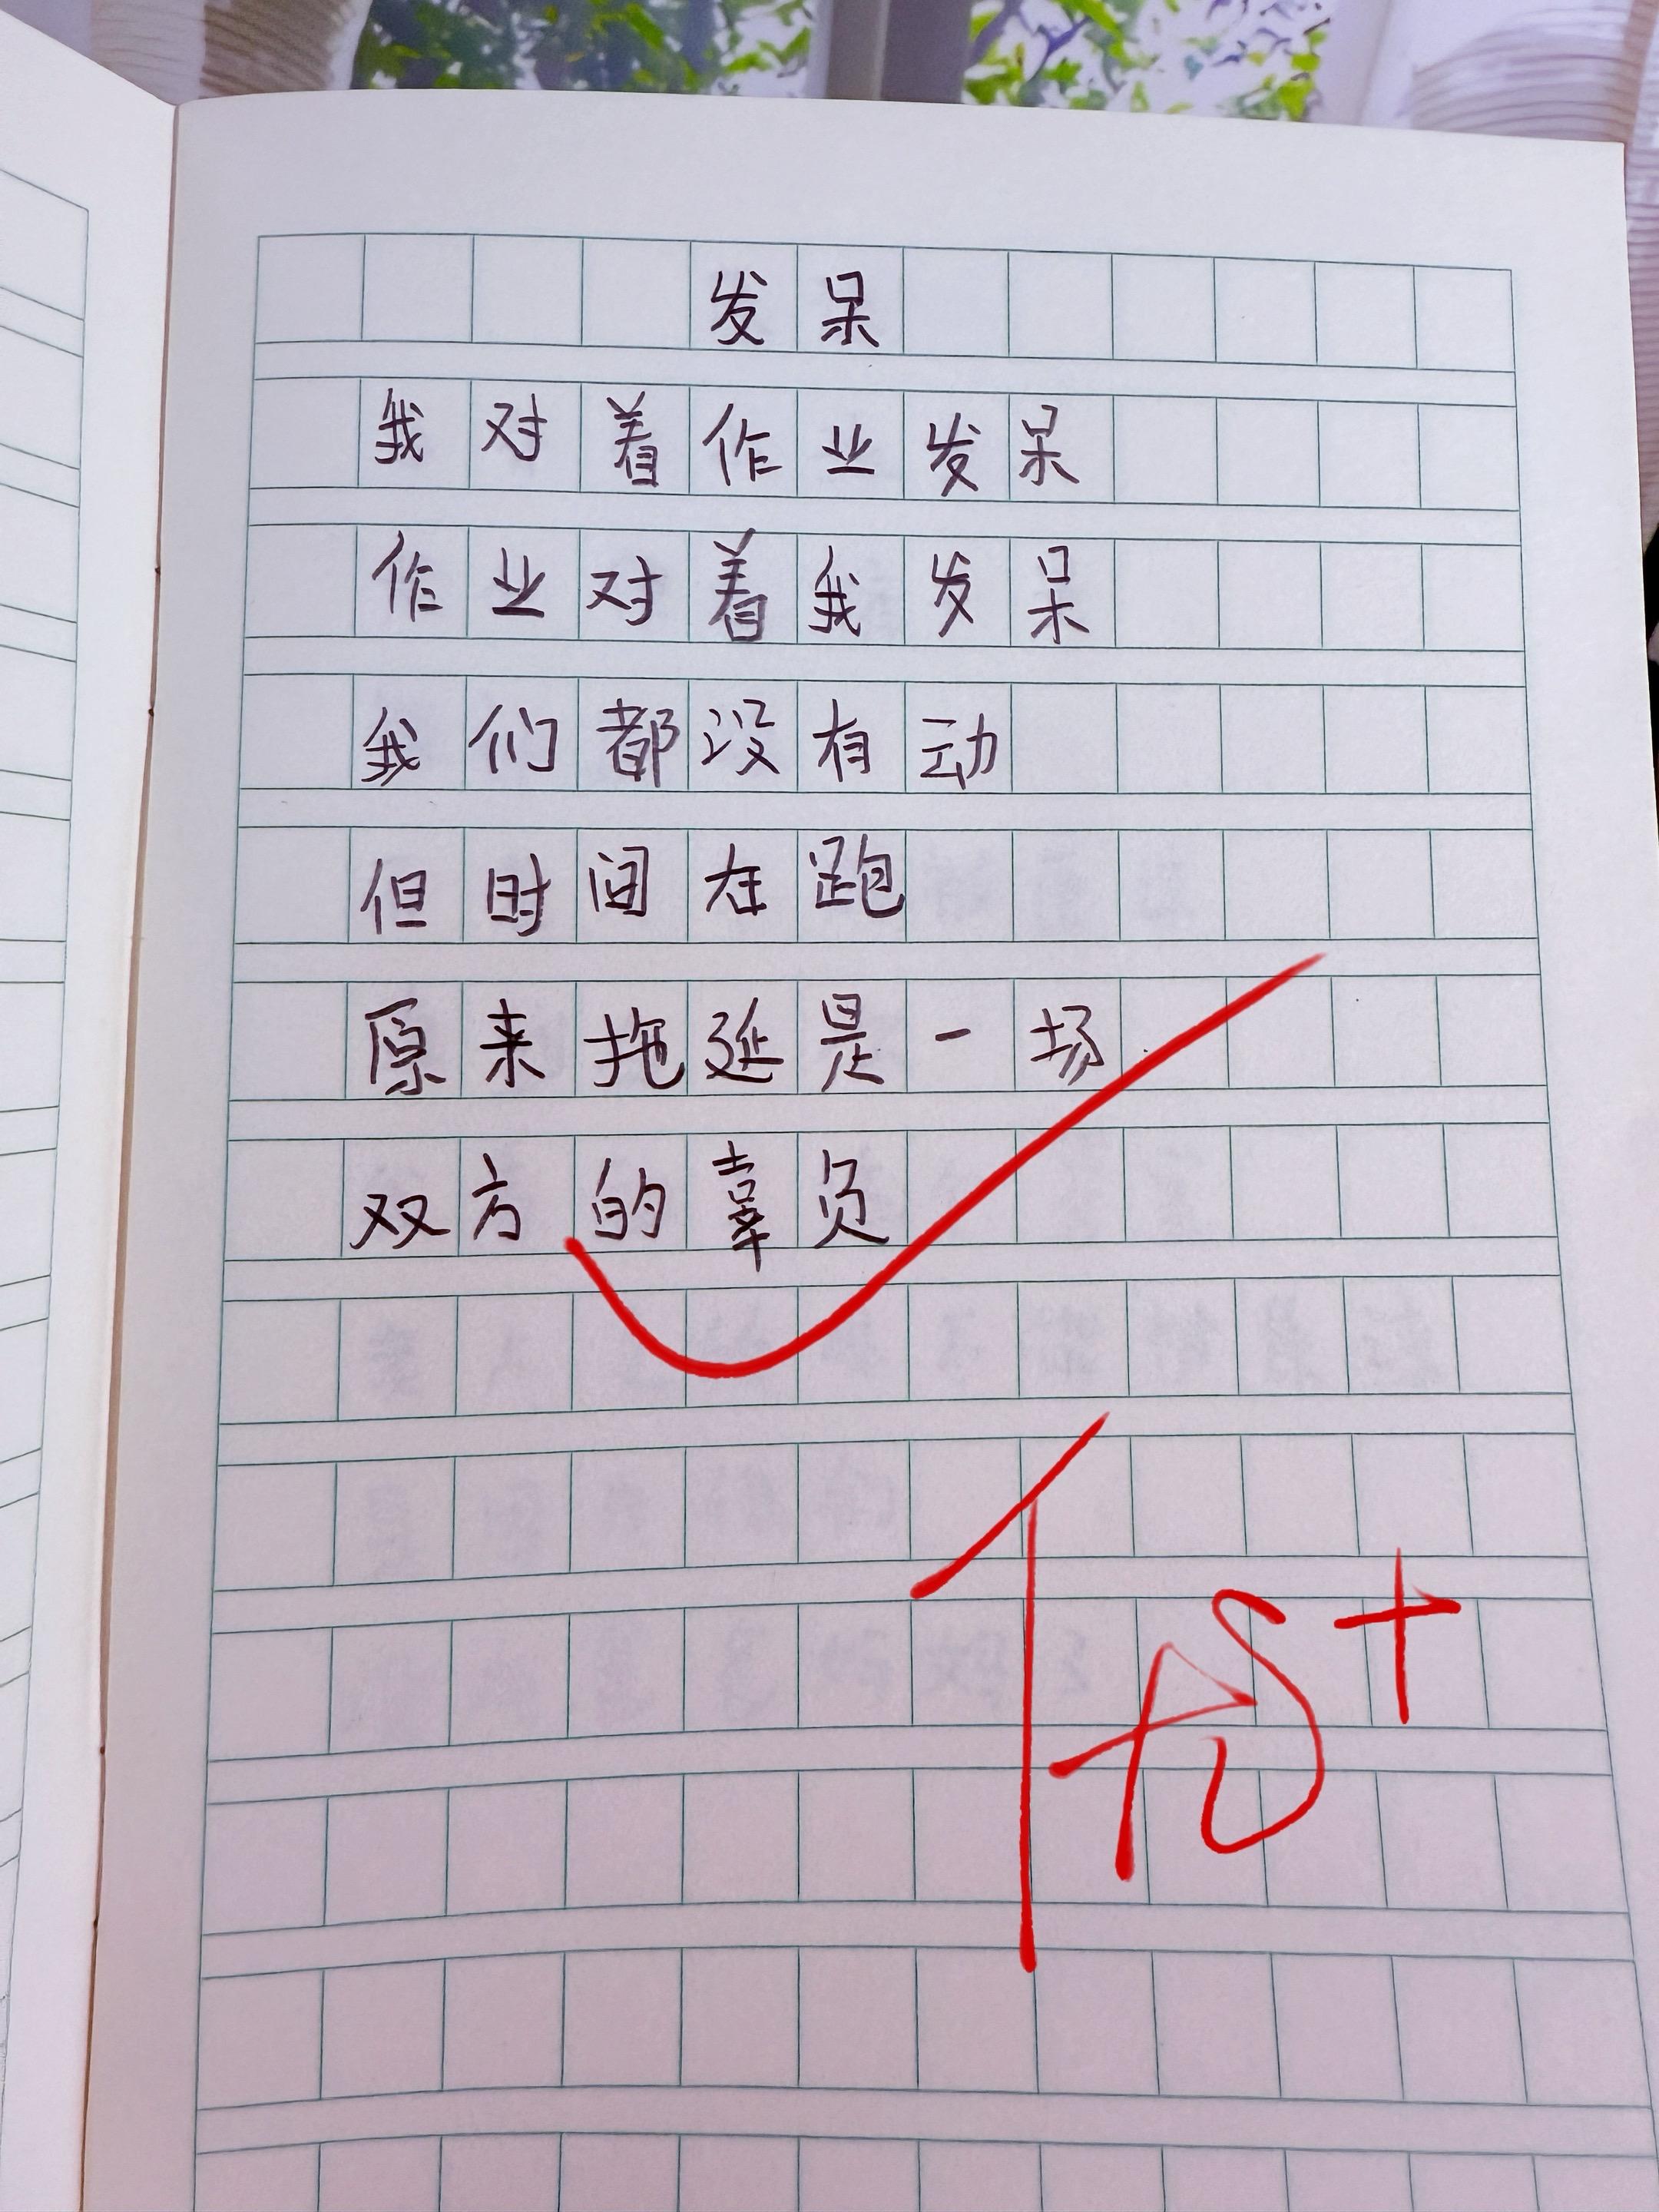 发呆
我对着作业发呆
作业对着我发呆
我们都没有动
但时间在跑
原来拖延是一场
双方的辜负
优+